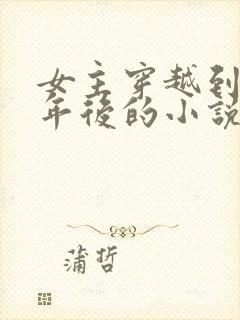 女主穿越到
年後的小説
蒲哲